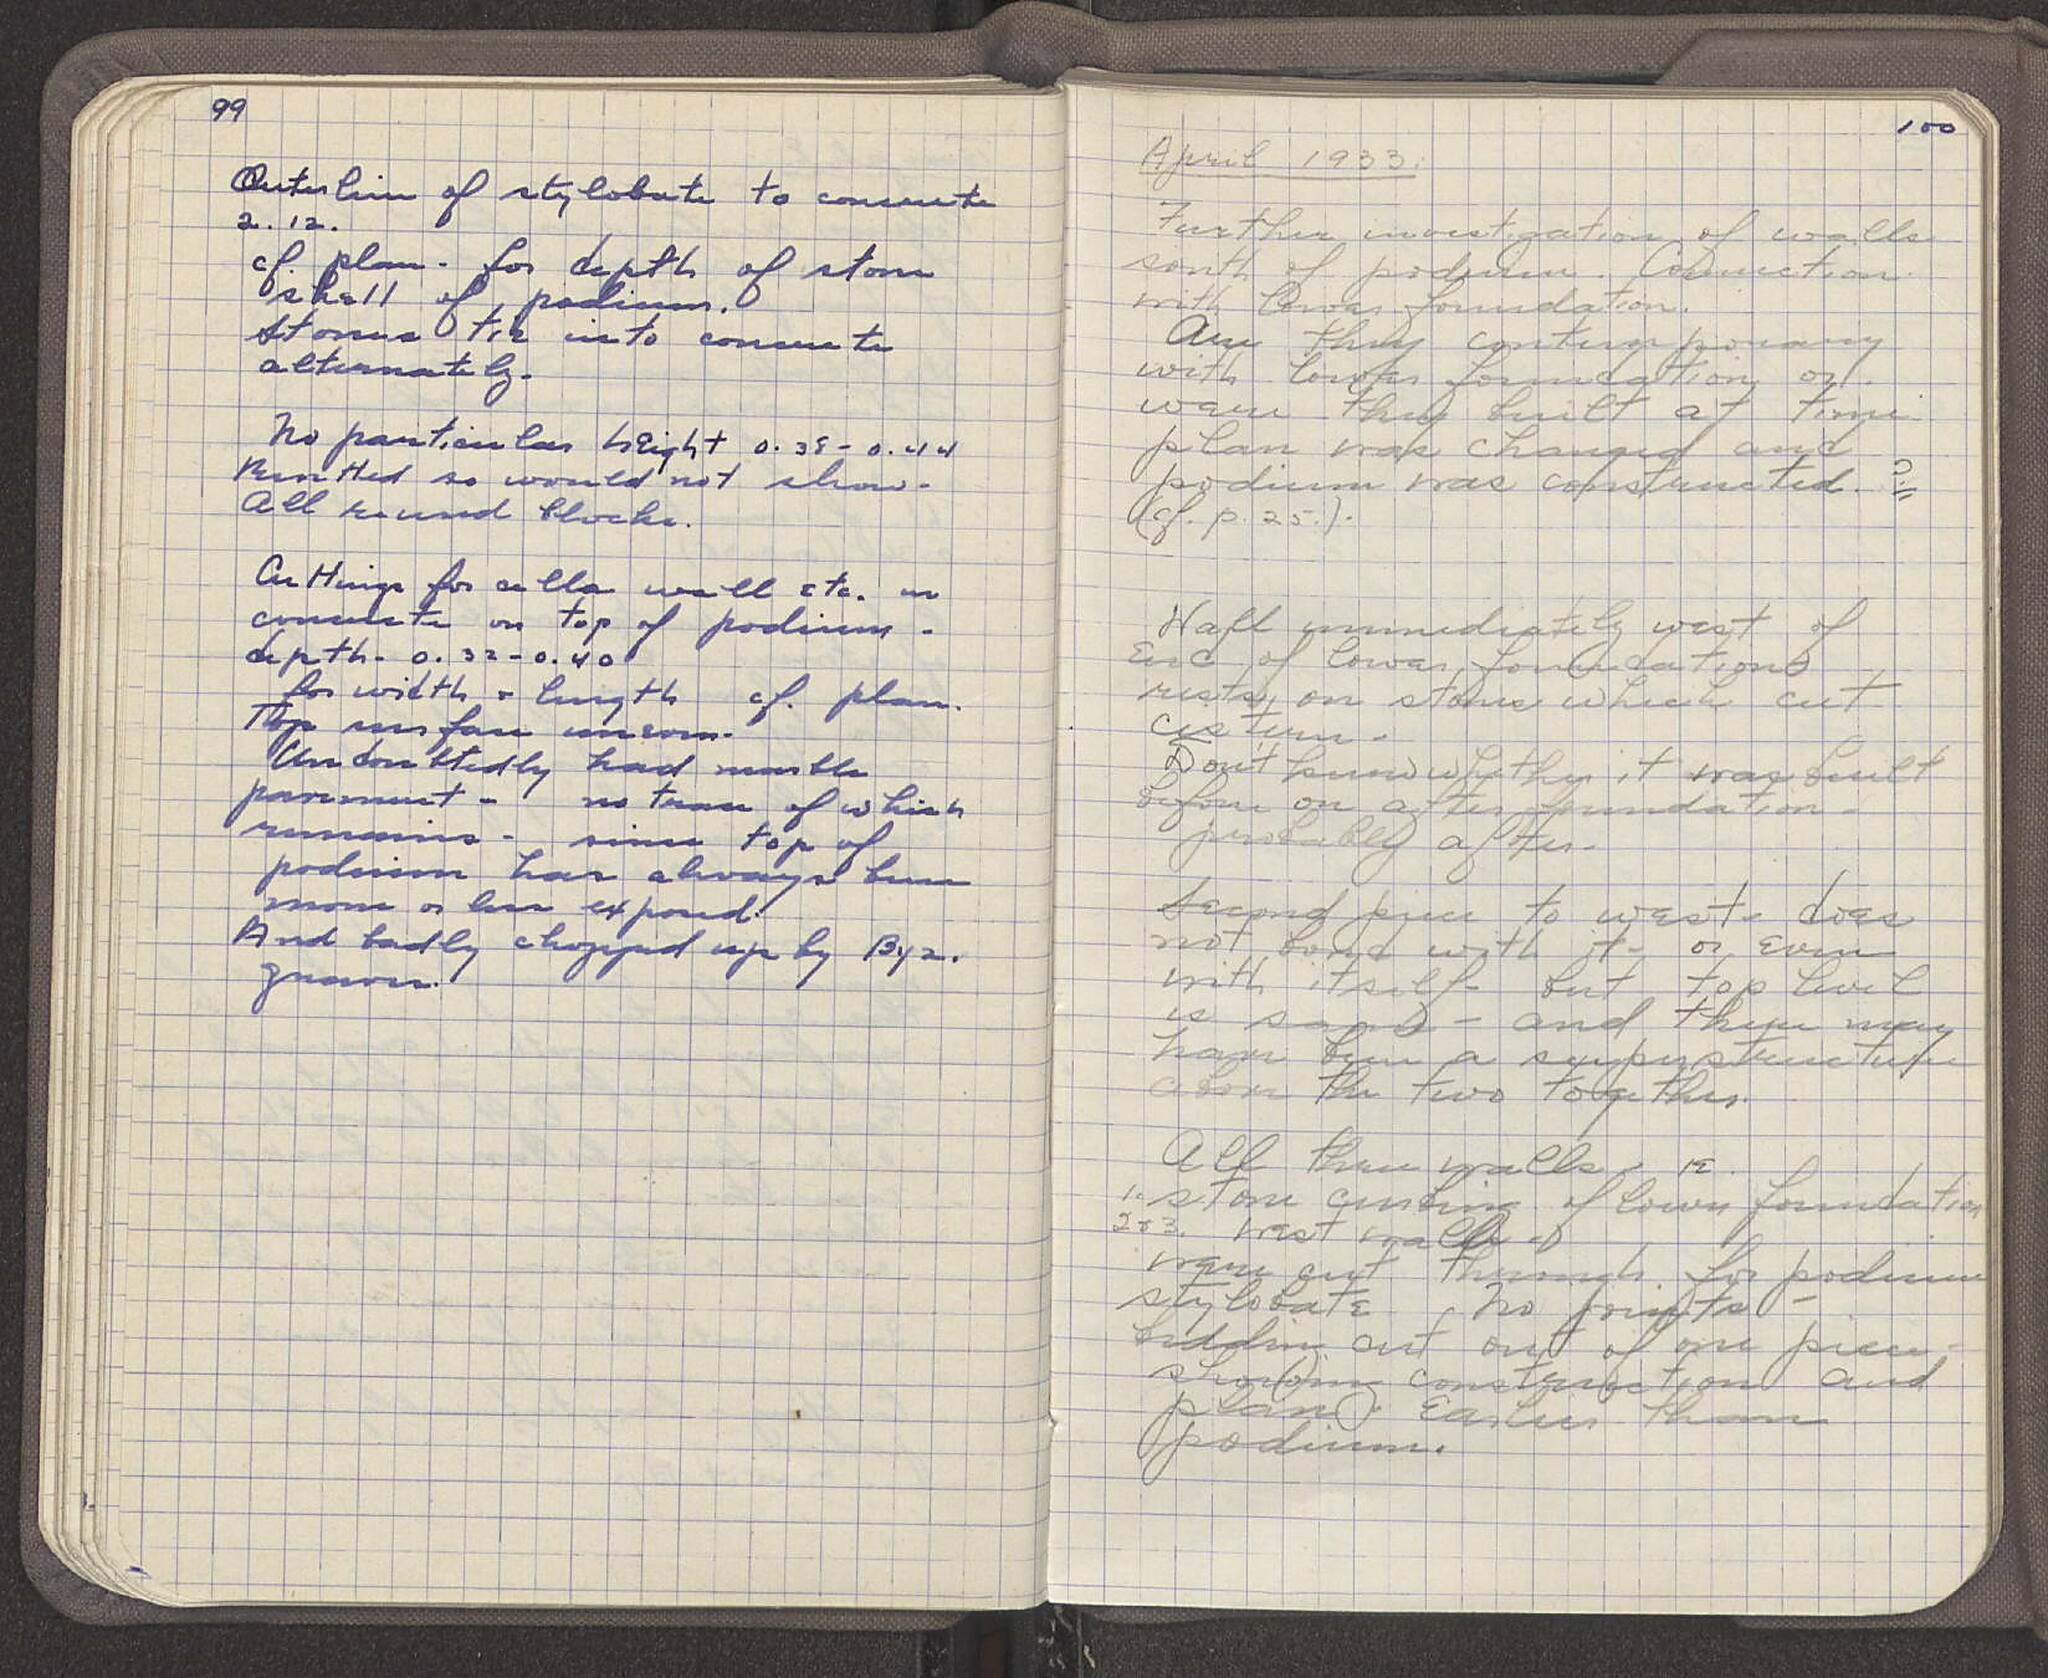 99
Outer line of stylobate to concrete
2.12.
cf. plan - for depth of stone
shell of podium.
Stones tie into concrete
alternately.
No particular height 0.38 - 0.44
so would not show -
All re used blocks.
Cuttings for cella wall etc. in
concrete on top of podium -
depth - 0.32 - 0.40
for width & length cf. plan.
Top surface uneven -
Undoubtedly had marble
pavement - no trace of which
remains - since top of
podium has always been
more or less exposed.
And badly chopped up by Byz.
graves.
100
April 1933.
Further investigation of walls
south of podium. Connection
with lower foundation.
Are they contemporary
with lower foundation or
were they built at time
plan was changed and
podium was constructed. ?
(cf. p. 25.).
Wall immediately west of
end of lower foundation
rests on stone which cut
cistern -
Don't know whether it was built
before or after foundation -
probably after -
Second piece to west - does
not bond with it - or even
with itself - but top level
is same - and there may
have been a superstructure
above the two together.
All three walls - ie.
1. stone curbing of lower foundation
2 & 3. west walls -
were cut through for podium
stylobate. No joints -
bedding cut out of one piece -
showing construction and
plan earlier than
podium.